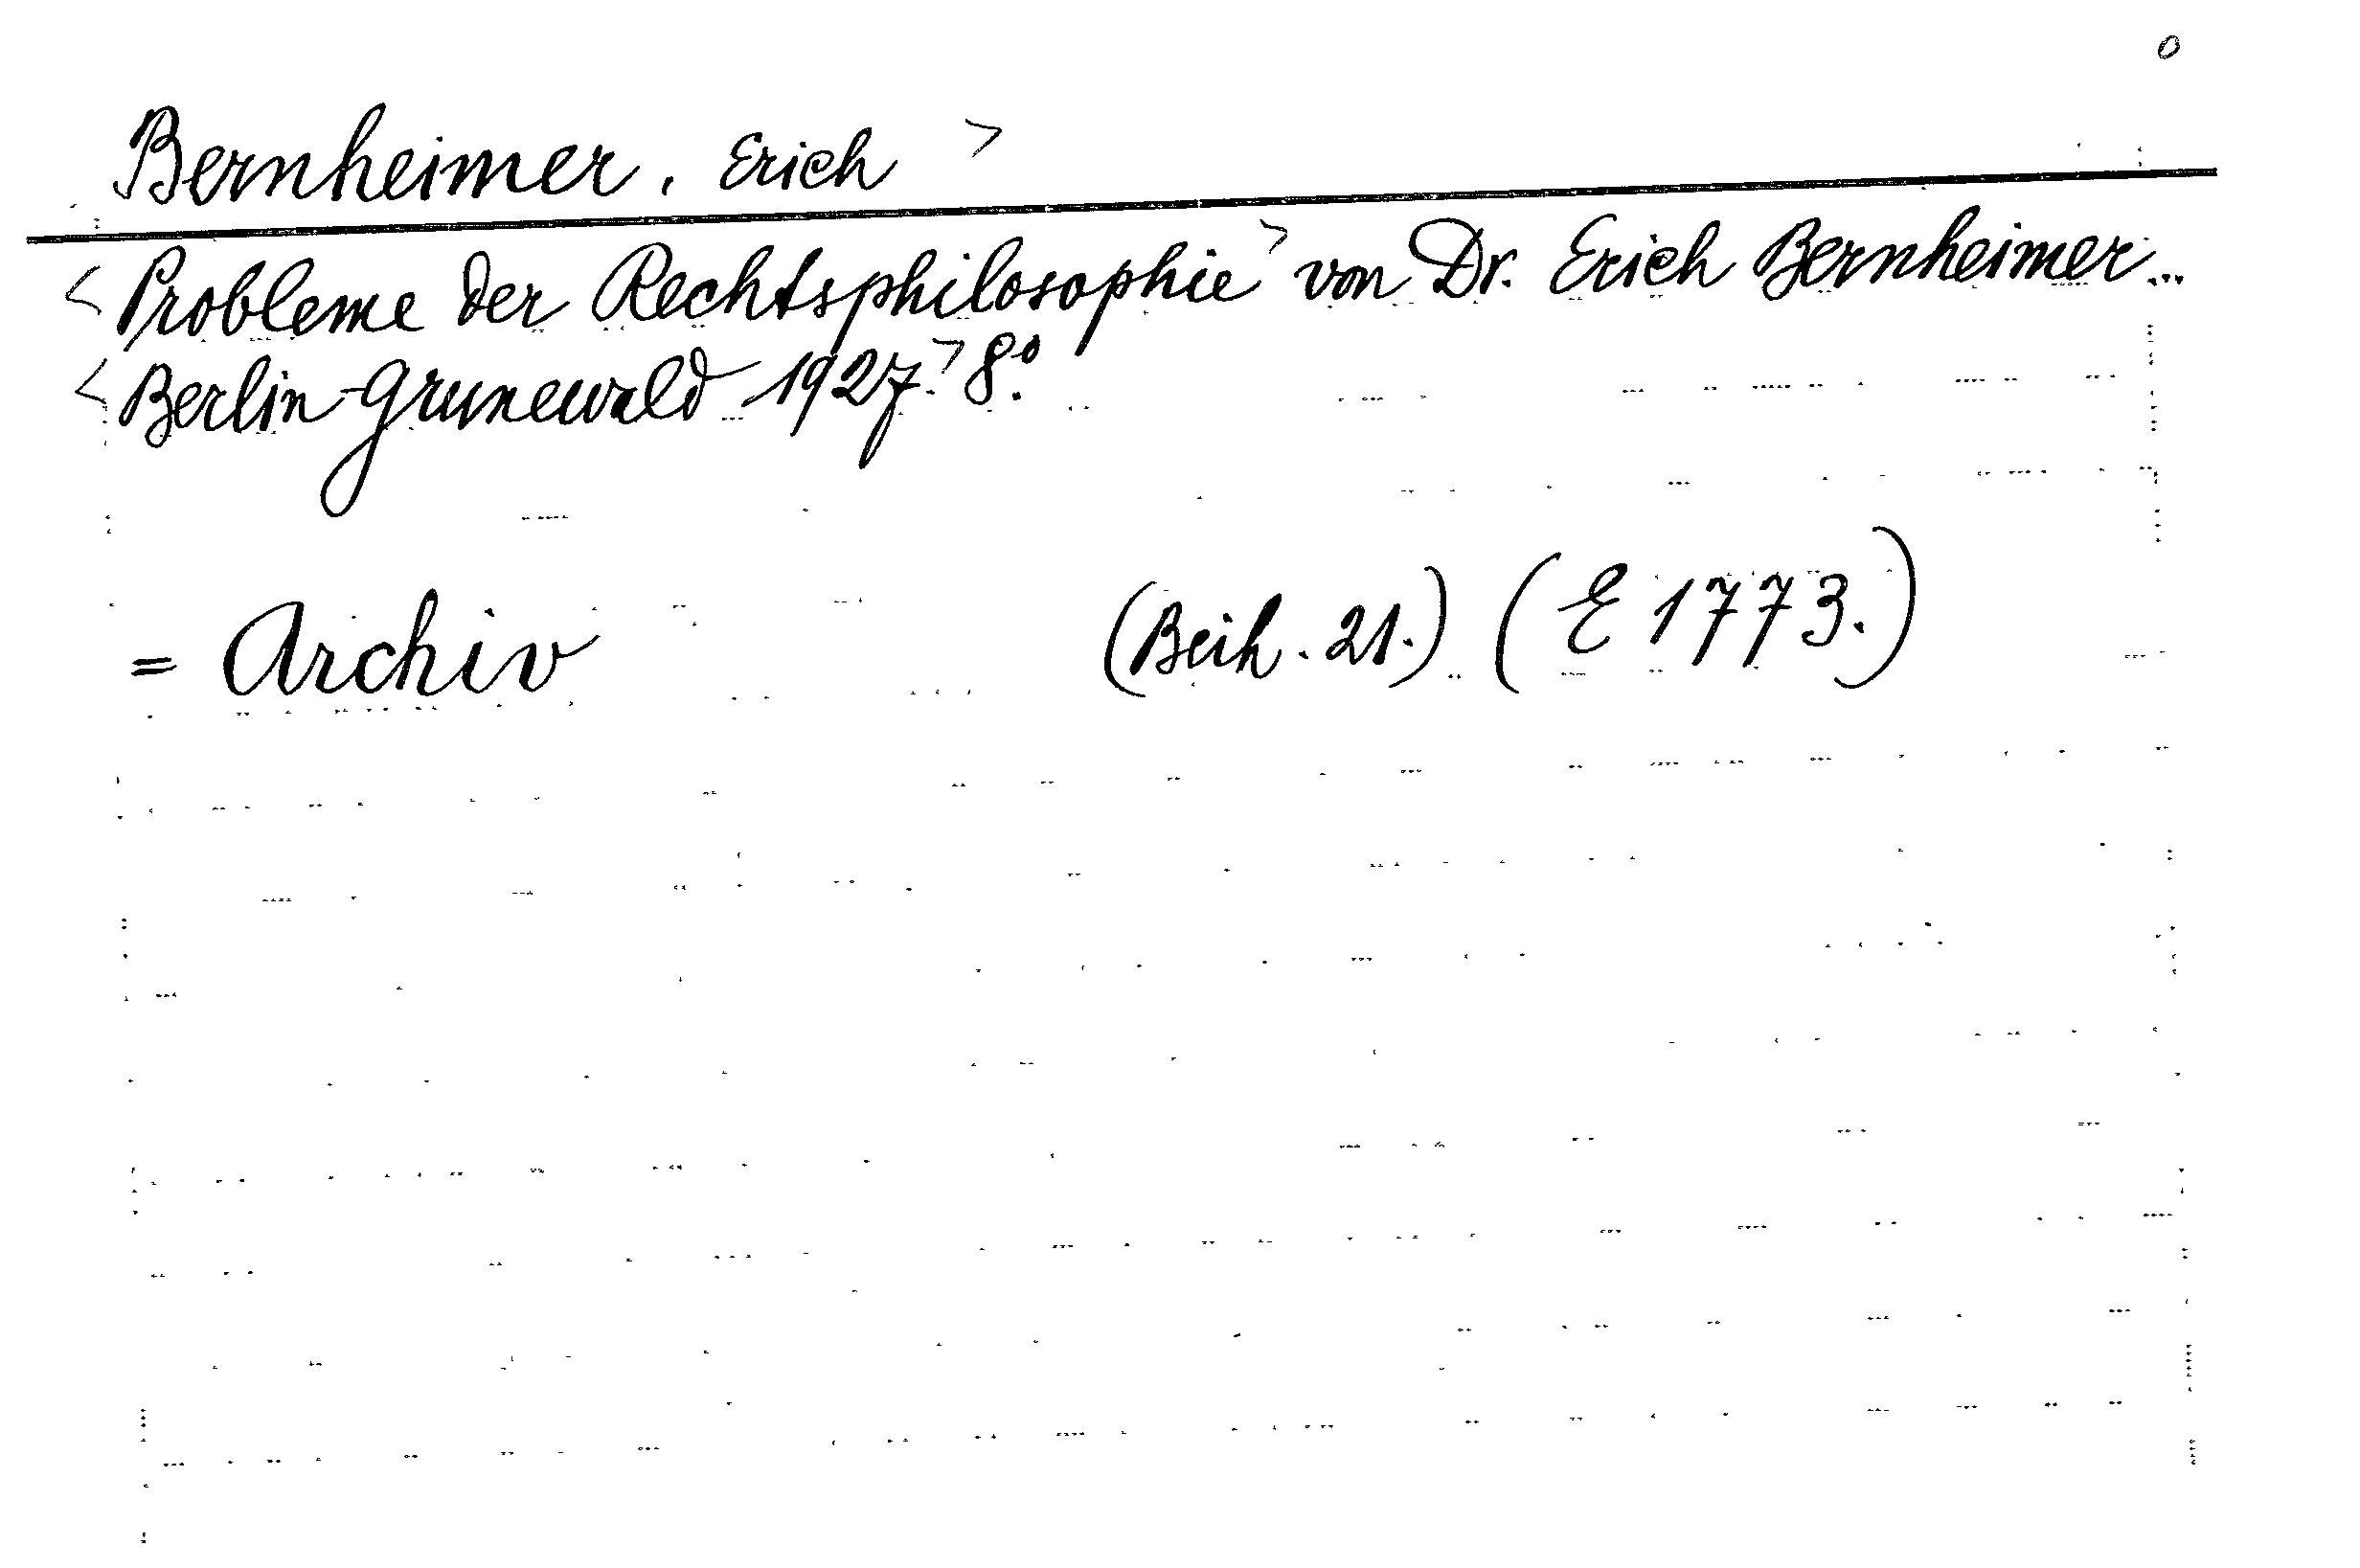 0
Bernheimer, Erich >
< Probleme der Rechtsphilosophie > von Dr. Erich Bernheimer...
< Berlin-Grunewald 1927. > 8°.
= Archiv (Beih. 21.) (E 1773.)